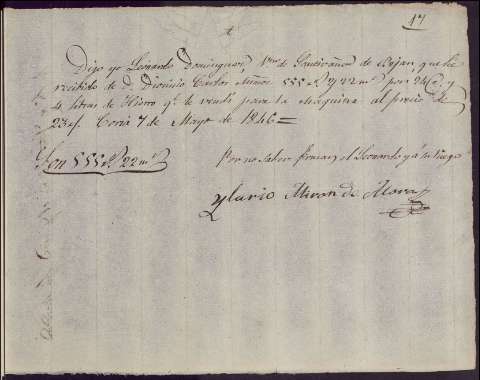 17
Digo yo Leonardo Dominguez, Vno. de Santivañez de Bejar, que he
recibido de D. Dionisio Muñoz 555 rs. y 22 ms. por 24 @. y
4 libras de Hierro qe. le vendi para la maquina al precio de
23 rs. Coria 7 de Mayo de 1846 =
Son 555 rs. 22 ms.
Por no saber firmar el Leonardo y á su ruego
Ylario Moran de Mora